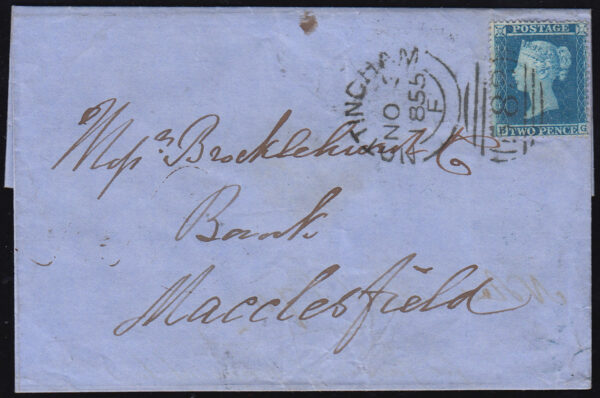 POSTAGE
TWO PENCE
G
TINGHAM
NO
855
Messrs Brocklehurst &
Bank
Macclesfield